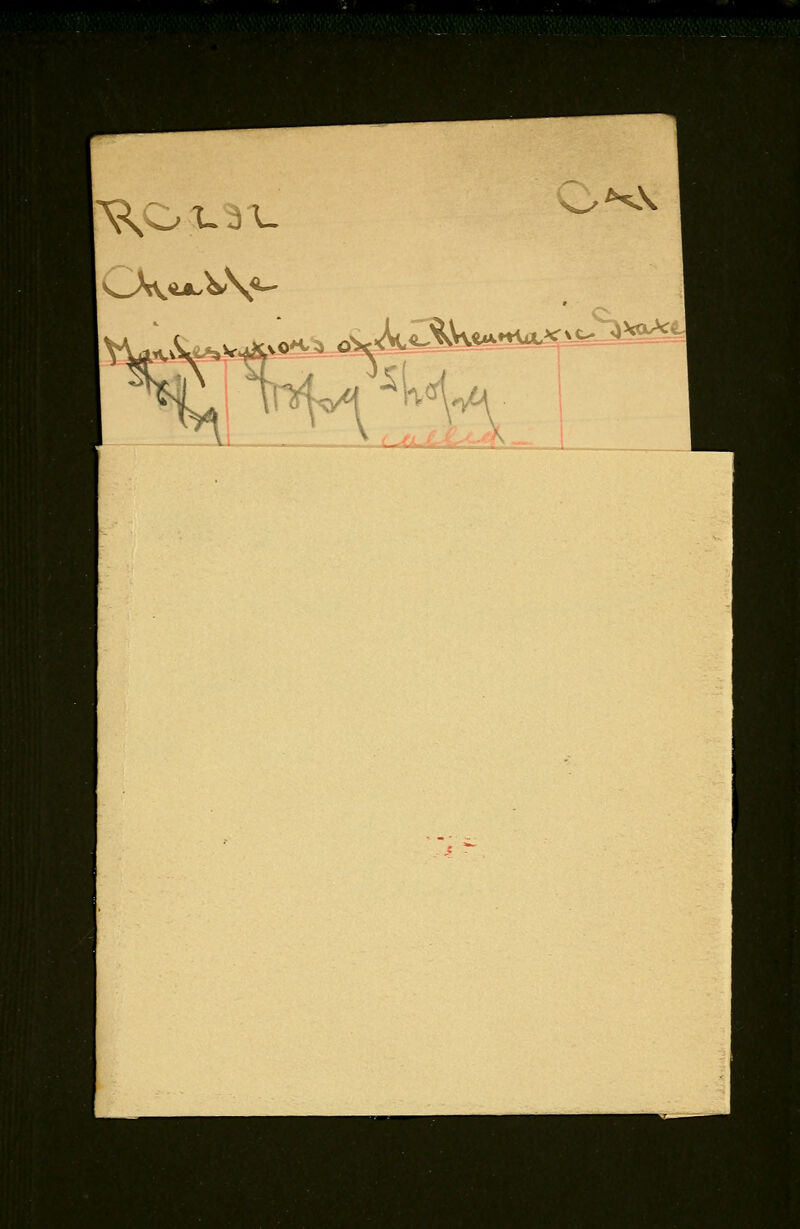 RC292 C41
Cheadle
Manifestations of the Rheumatic State
5/6/29 5/13/29 5/20/29
called